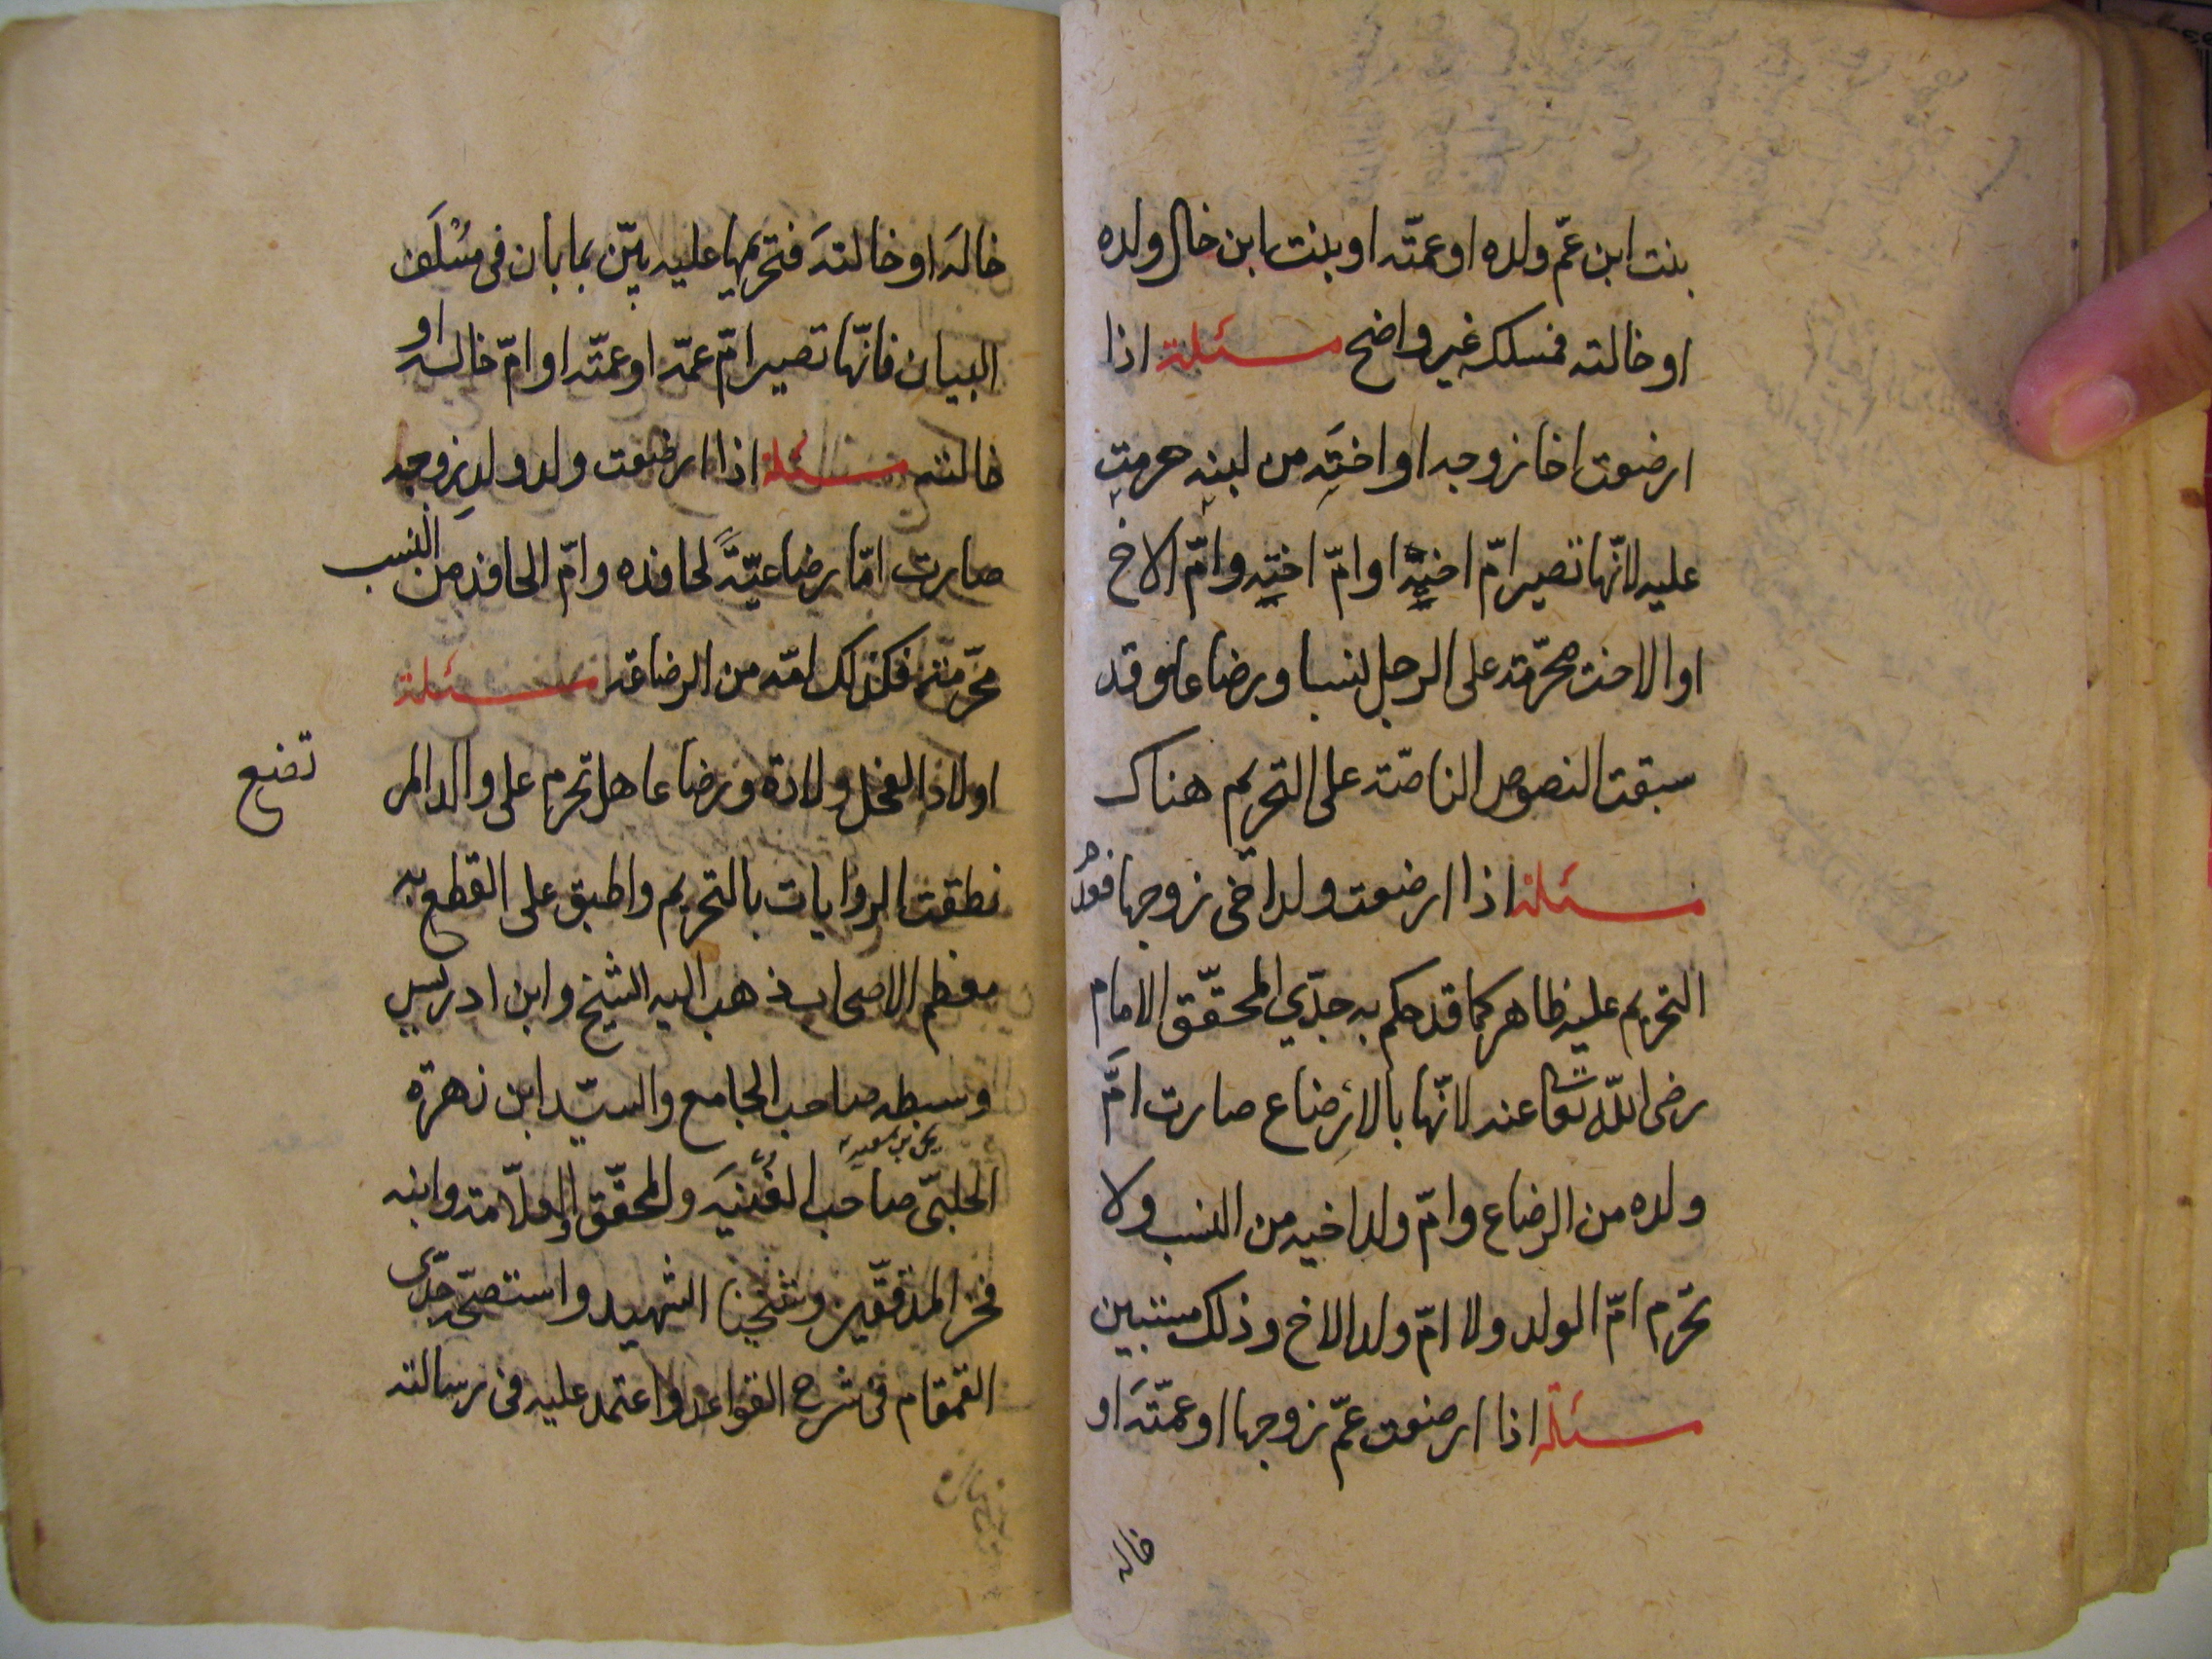 بنت ابن عمّ ولده او عمّته او بنت ابن خال ولده
او خالته فمسلكه غير واضح مسئلة اذا
ارضعت اخا زوجه او اختَه من لبنِه حرمت
عليه لانّها تصير امّ اخيِه او امّ اختِه وامّ الاخ
او الاخت محرّمة على الرجل نسبا ورضاعا وقد
سبقت النصوص الناصّة على التحريم هناك
مسئلة اذا ارضعت ولد اخى زوجها فعدم
التحريم عليه ظاهر كما قد حكم به جدّي المحقّق الامام
رضى اللّه تعا عنه لانّها بالارضاع صارت امَّ
ولده من الرضاع وامّ ولد اخيه من النسب ولا
تحرم امّ الولد ولا امّ ولد الاخ وذلك مستبين
مسئلة اذا ارضعت عمّ زوجها او عمّتَه او
خاله
خالَه او خالتهَ فتحريمها عليه بيّن بما بان فى مسْلَف
البيان فانّها تصير امّ عمّه او عمّته او امّ خاله او
خالته مسئلة اذا ارضعت ولد ولدِ زوجه
صارت امّا رضاعيّةً لحافده وامّ الحافد من النسب
محرّمة فكذلك امّه من الرضاعة مسئلة
اولاد الفحل ولادة ورضاعا هل تحرم على والد المر
تضع
نطقت الروايات بالتحريم واطبق على القطع به
معظم الاصحاب ذهب اليه الشيخ وابن ادريس
وسبطه صاحب الجامع والسيّد ابن زهرة
يحيى بن سعيد
الحلبىّ صاحب الغُنيَة والمحقّق والعلّامة وابنه
فخر المدقّقين وشيخنا الشهيد واستصحّ جدّى
القمقام فى شرح القواعد واعتمد عليه فى رسالته